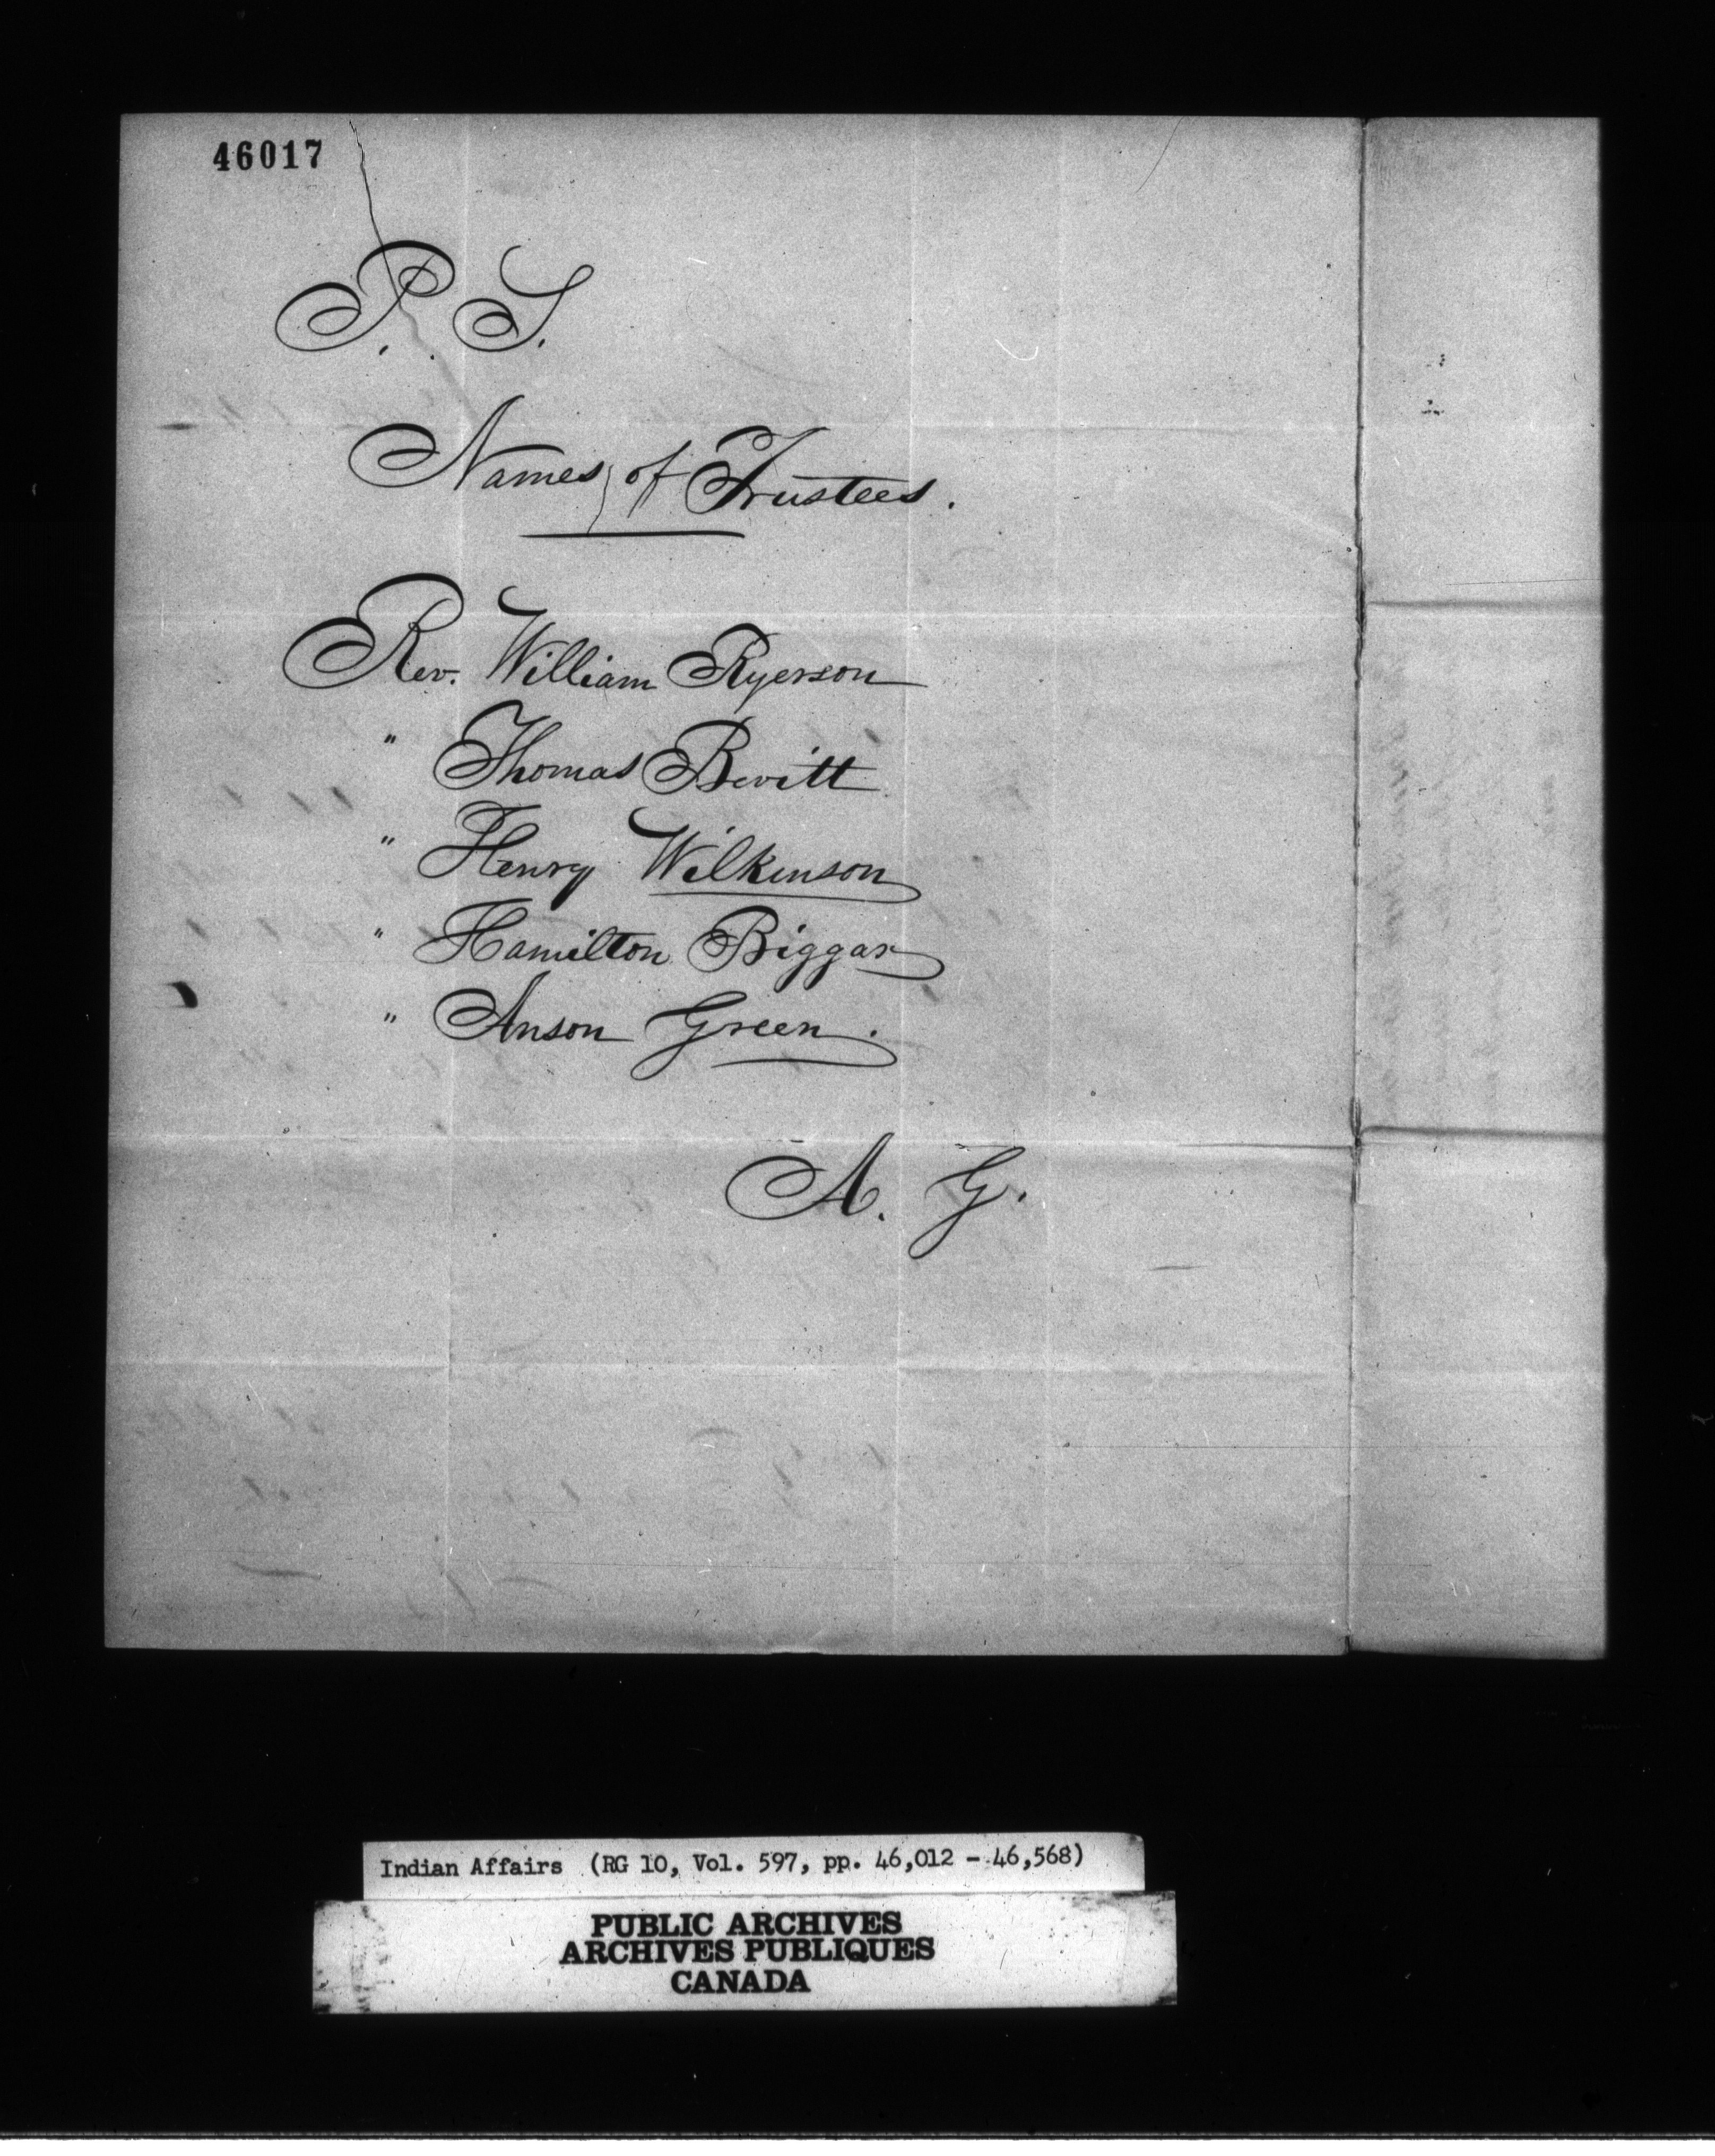 46017
P. S.
Names of Trustees.
Rev. William Ryerson
" Thomas Bevitt
" Henry Wilkinson
" Hamilton Biggar
" Anson Green.
A. G.
Indian Affairs (RG 10, Vol. 597, pp. 46,012 - 46,568)
PUBLIC ARCHIVES
ARCHIVES PUBLIQUES
CANADA